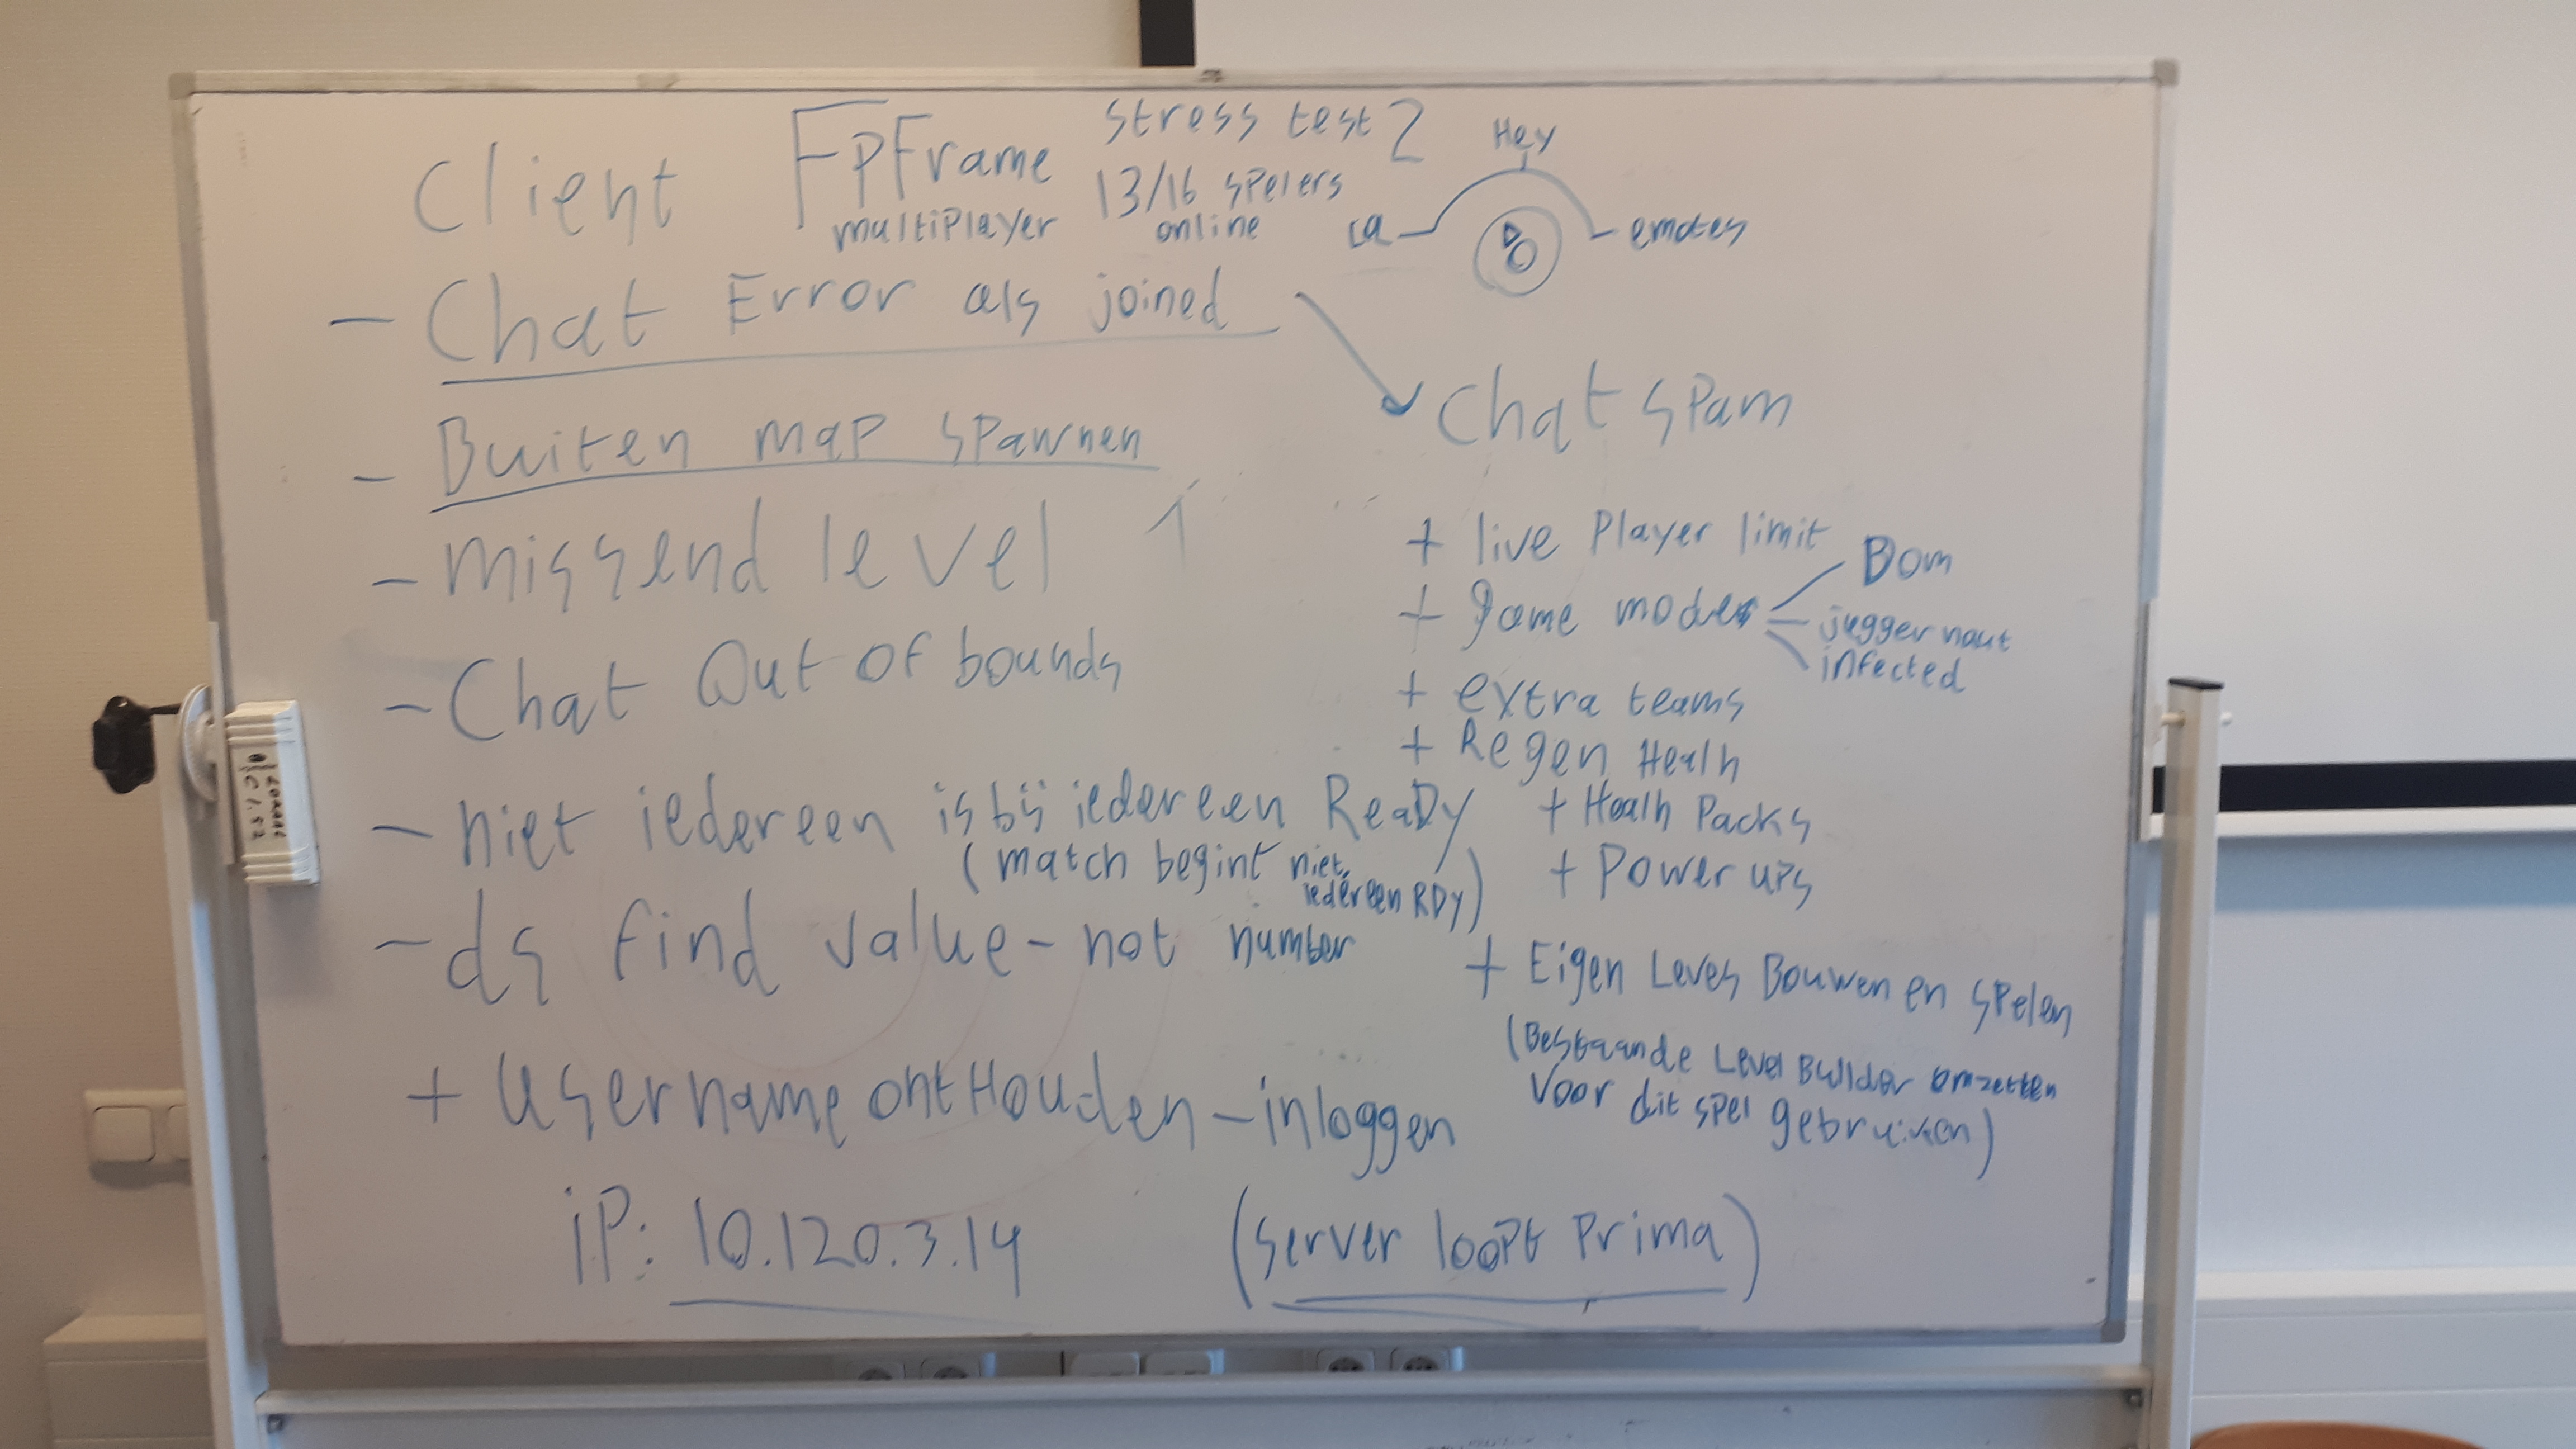 Client
FpFrame
multiplayer
stress test 2
13/16 spelers
online
Hey
emotes
- Chat Error als joined
Chat spam
- Buiten map spawnen
- missend level 1
- Chat Out of bounds
- niet iedereen is bij iedereen Ready
(match begint niet,
iedereen RDy)
- ds find value - not number
+ username ontHouden - inloggen
iP: 10.120.3.14
(server loopt prima)
+ live player limit
+ game modes
Bom
juggernaut
infected
+ extra teams
+ Regen Healh
+ Healh Packs
+ Power ups
+ Eigen Leves Bouwen en spelen
(Bestaande Level Builder omzetten
Voor dit spel gebruiken)